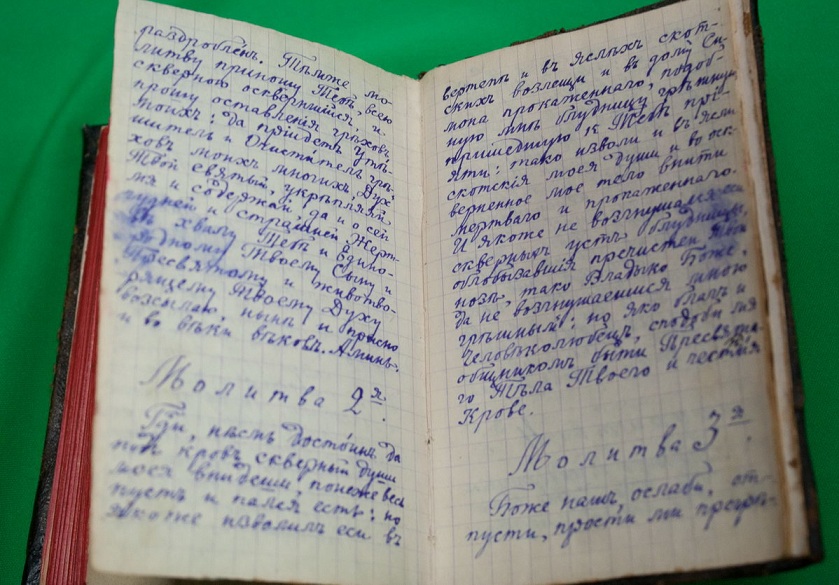 раздробленъ. Тѣмже мо-
литву приношу Тебѣ, весь
скверною осквернийся, и
прошу оставленія грѣховъ
моихъ: да прійдетъ утѣ-
шитель и Очиститель грѣ-
ховъ моихъ многихъ, Духъ
Твой святый, укрѣпляяй
мя и содержай, да и о сей
чуднѣй и страшнѣй Жерт-
вѣ хвалу Тебѣ и Едино-
родному Твоему Сыну и
Пресвятому и животво-
рящему Твоему Духу
возсылаю, нынѣ и присно
и во вѣки вѣковъ. Аминь.
Молитва 2я.
Гди, нѣсть достоинъ да
подъ кровъ скверный души
моея внидеши, понеже весь
пустъ и палея есть: но
якоже изволилъ еси въ
вертепѣ и въ яслѣхъ скот-
скихъ возлещи и въ дому Си-
мона прокаженнаго, подоб-
ную мнѣ блудницу грѣшную
пришедшую къ Тебѣ прі-
яти: тако изволи и въ ясли
скотскія моея души и во оск-
верненное мое тѣло внити
мертваго и прокаженнаго.
И якоже не возгнушался еси
скверныхъ устъ блудницы,
облобызавшія пречистѣи Твои
нозѣ, тако Владыко Боже,
да не возгнушаешися мною
грѣшнымъ: но яко благъ и
Человѣколюбецъ, сподоби мя
общникомъ быти Пресвята-
го Тѣла Твоего и честныя
Крове.
Молитва 3я.
Боже нашъ, ослаби, от-
пусти, прости ми прегрѣ-